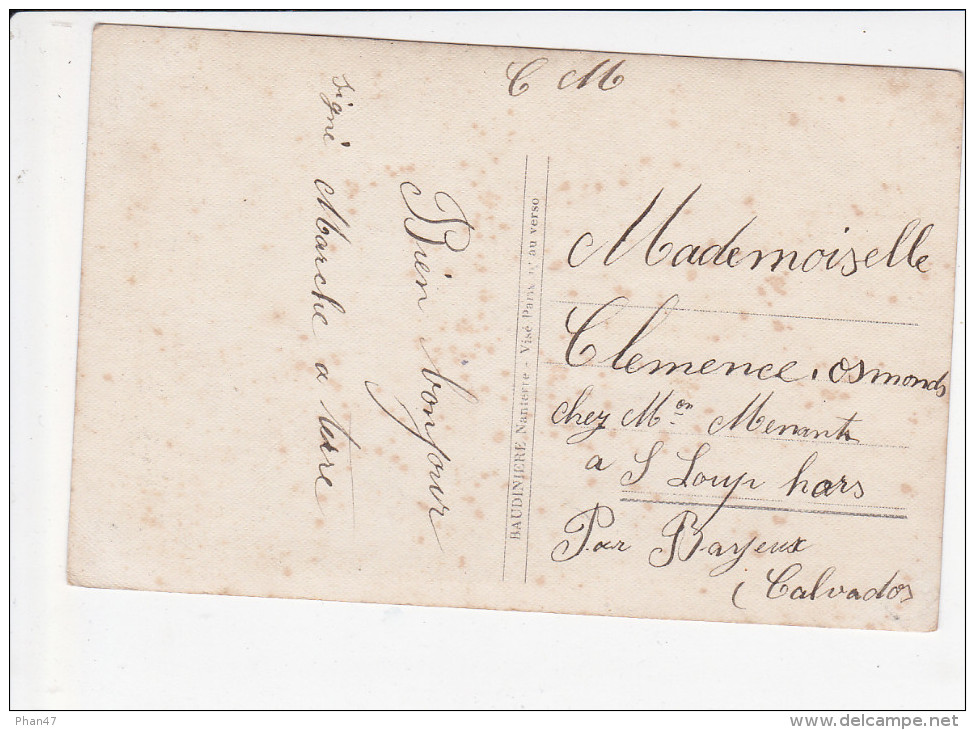 C M
Bien bonjour
signé Marche a terre
BAUDINIERE Nanterre - Visé Paris n° au verso
Mademoiselle
Clemence. osmonds
chez M.on Menant
a S Loup hors
Par Bayeux
(Calvados
Phan47
www.delcampe.net